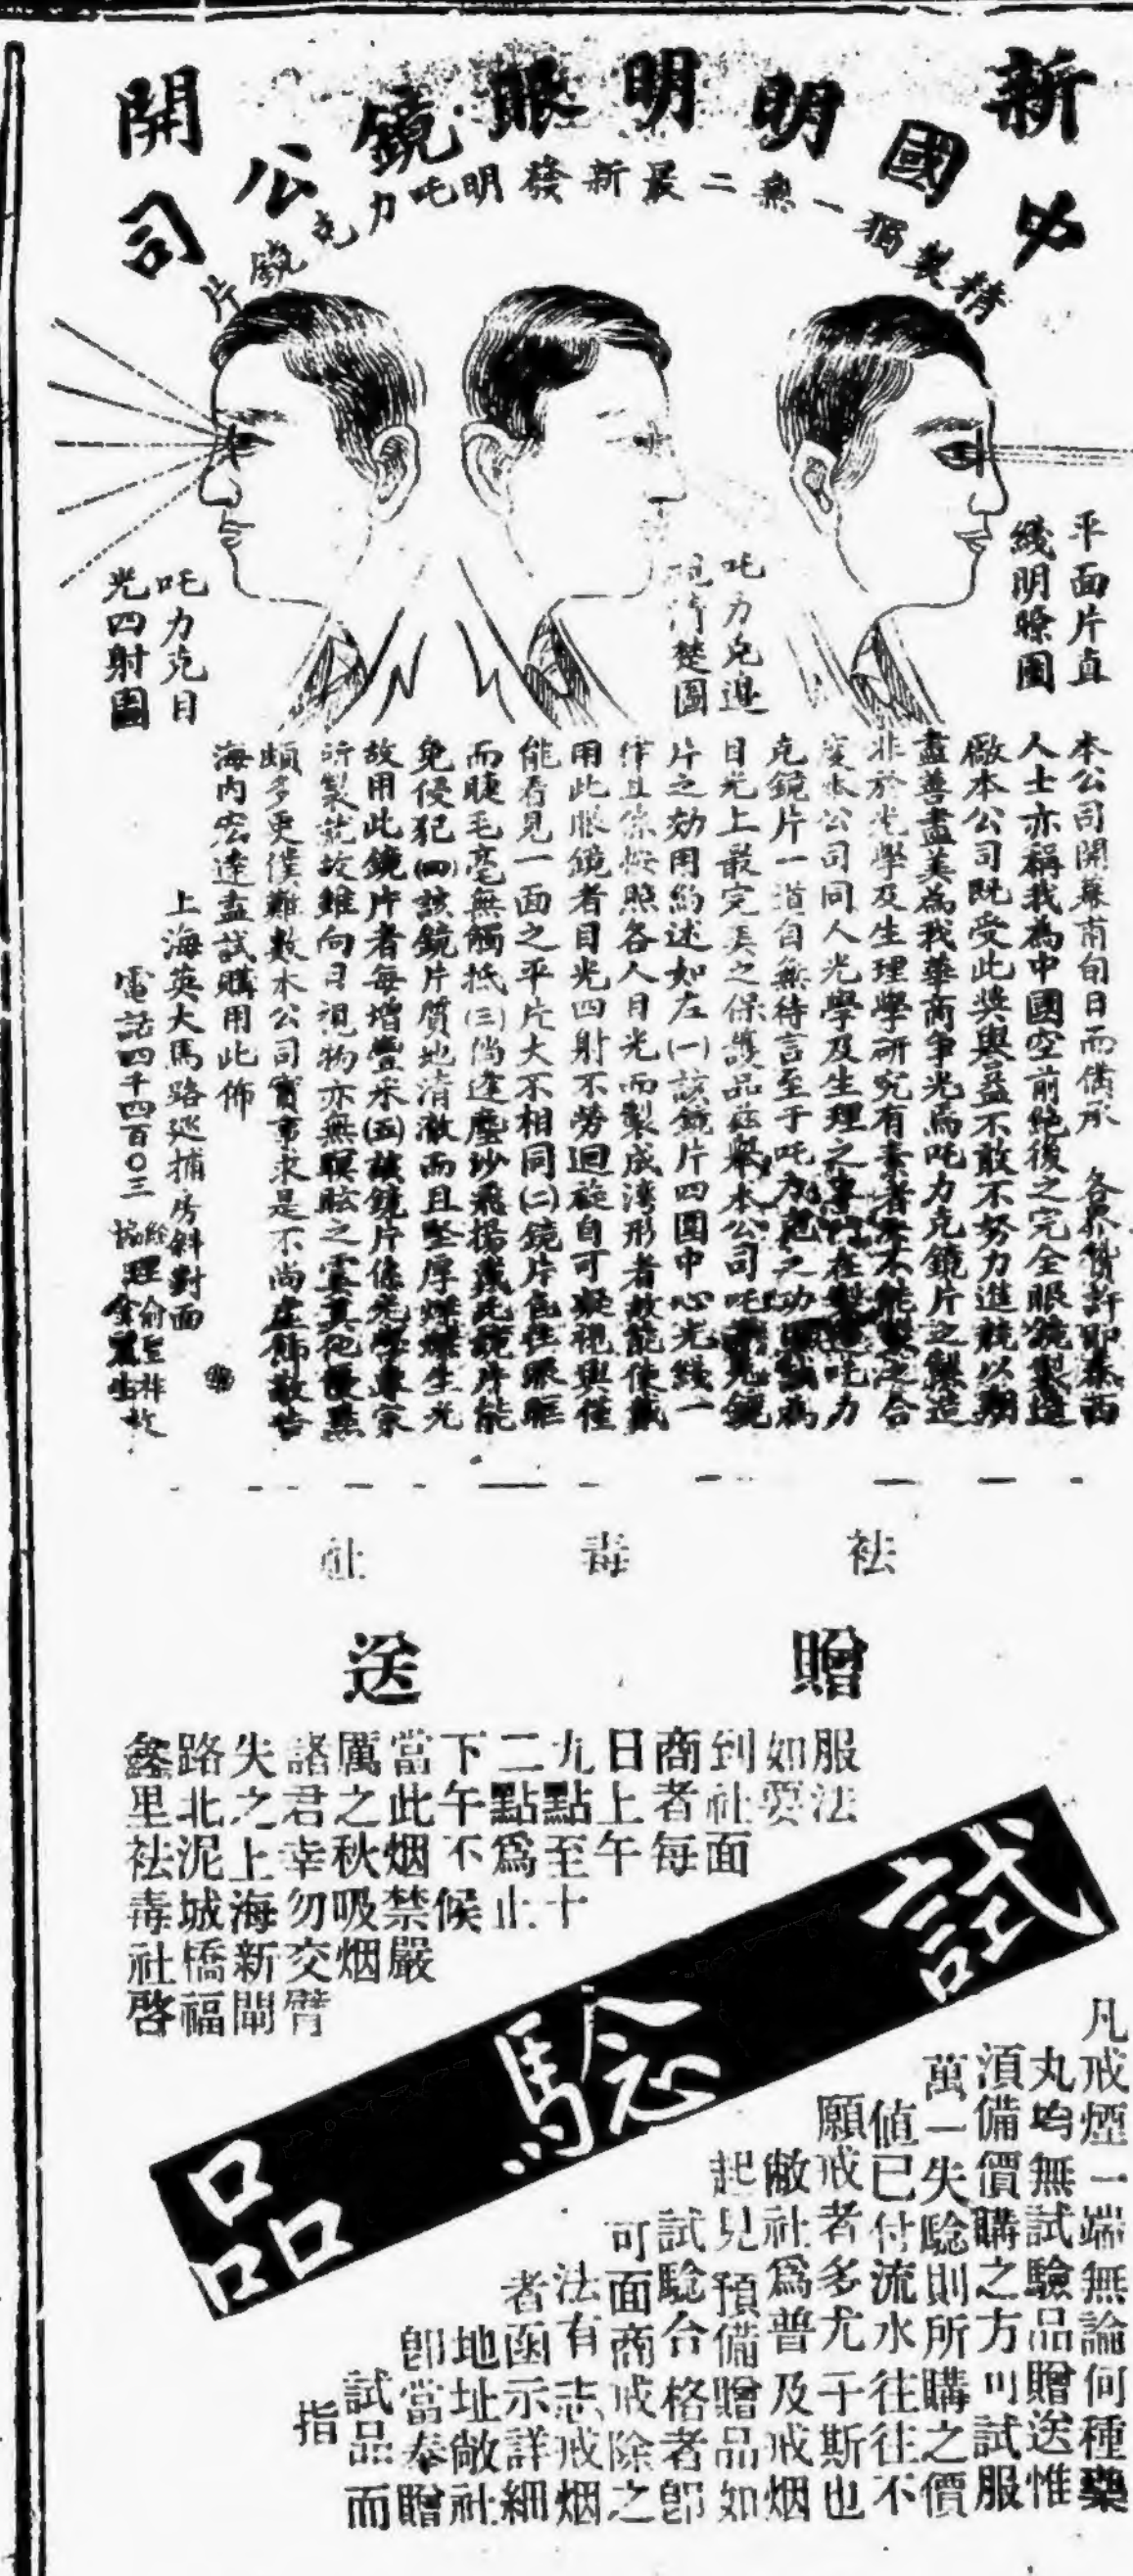 新開
中國明明眼鏡公司
精製獨一無二最新發明吒力克戲片
平面片直
綫明瞭圖
吒力克邊
視清楚圖
吒力克目
光四射圖
本公司開幕甫旬日而備承 各界贊許即泰西
人士亦稱我為中國空前絶後之完全眼鏡製造
廠本公司既受此奬譽益不敢不努力進競以期
盡善盡美為我華商爭光焉吒力克鏡片之製造
非於光學及生理學研究有素者 不能 合
度本公司同人光學及生理之專門在製造吒力
克鏡片一道自無待言至于吒力克之功 為
目光上最完美之保護品茲舉本公司吒力克鏡
片之効用約述如左㈠該鏡片四圍中心光綫一
律且係按照各人目光而製成灣形者故能使戴
用此眼鏡者目光四射不勞迴旋自可凝視與僅
能看見一面之平片大不相同㈡鏡片包住眼眶
而睫毛毫無觸抵㈢倘逢塵沙飛揚戴此鏡片能
免侵犯㈣該鏡片質地清澈而且堅厚 生光
故用此鏡片者每增豐采㈤該鏡片係光學專家
所製就故雖向日視物亦無瞑眩之虞其他優點
頗多更僕難數本公司實事求是不尚虛佈敬告
海內宏達盍試購用此佈
上海英大馬路巡捕房斜對面
電話四千四百〇三
總理俞
協理金
祛毒社
贈送
試騐品
凡戒煙一端無論何種藥
丸嗚無試驗品贈送惟
須備價購之方可試服
萬一失騐則所購之價
值已付流水往往不
願戒者多尤于斯也
敝社爲普及戒烟
起見預備贈品如
試騐合格者卽
可面商戒除之
法有志戒烟
者函示詳細
地址敝社
卽當奉贈
試品而
指
服法
如要
到社面
商者每
日上午
九點至十
二點爲止
下午不候
當此烟禁嚴
厲之秋吸烟
諸君幸勿交臂
失之上海新閘
路北泥城橋福
鑫里祛毒社啓